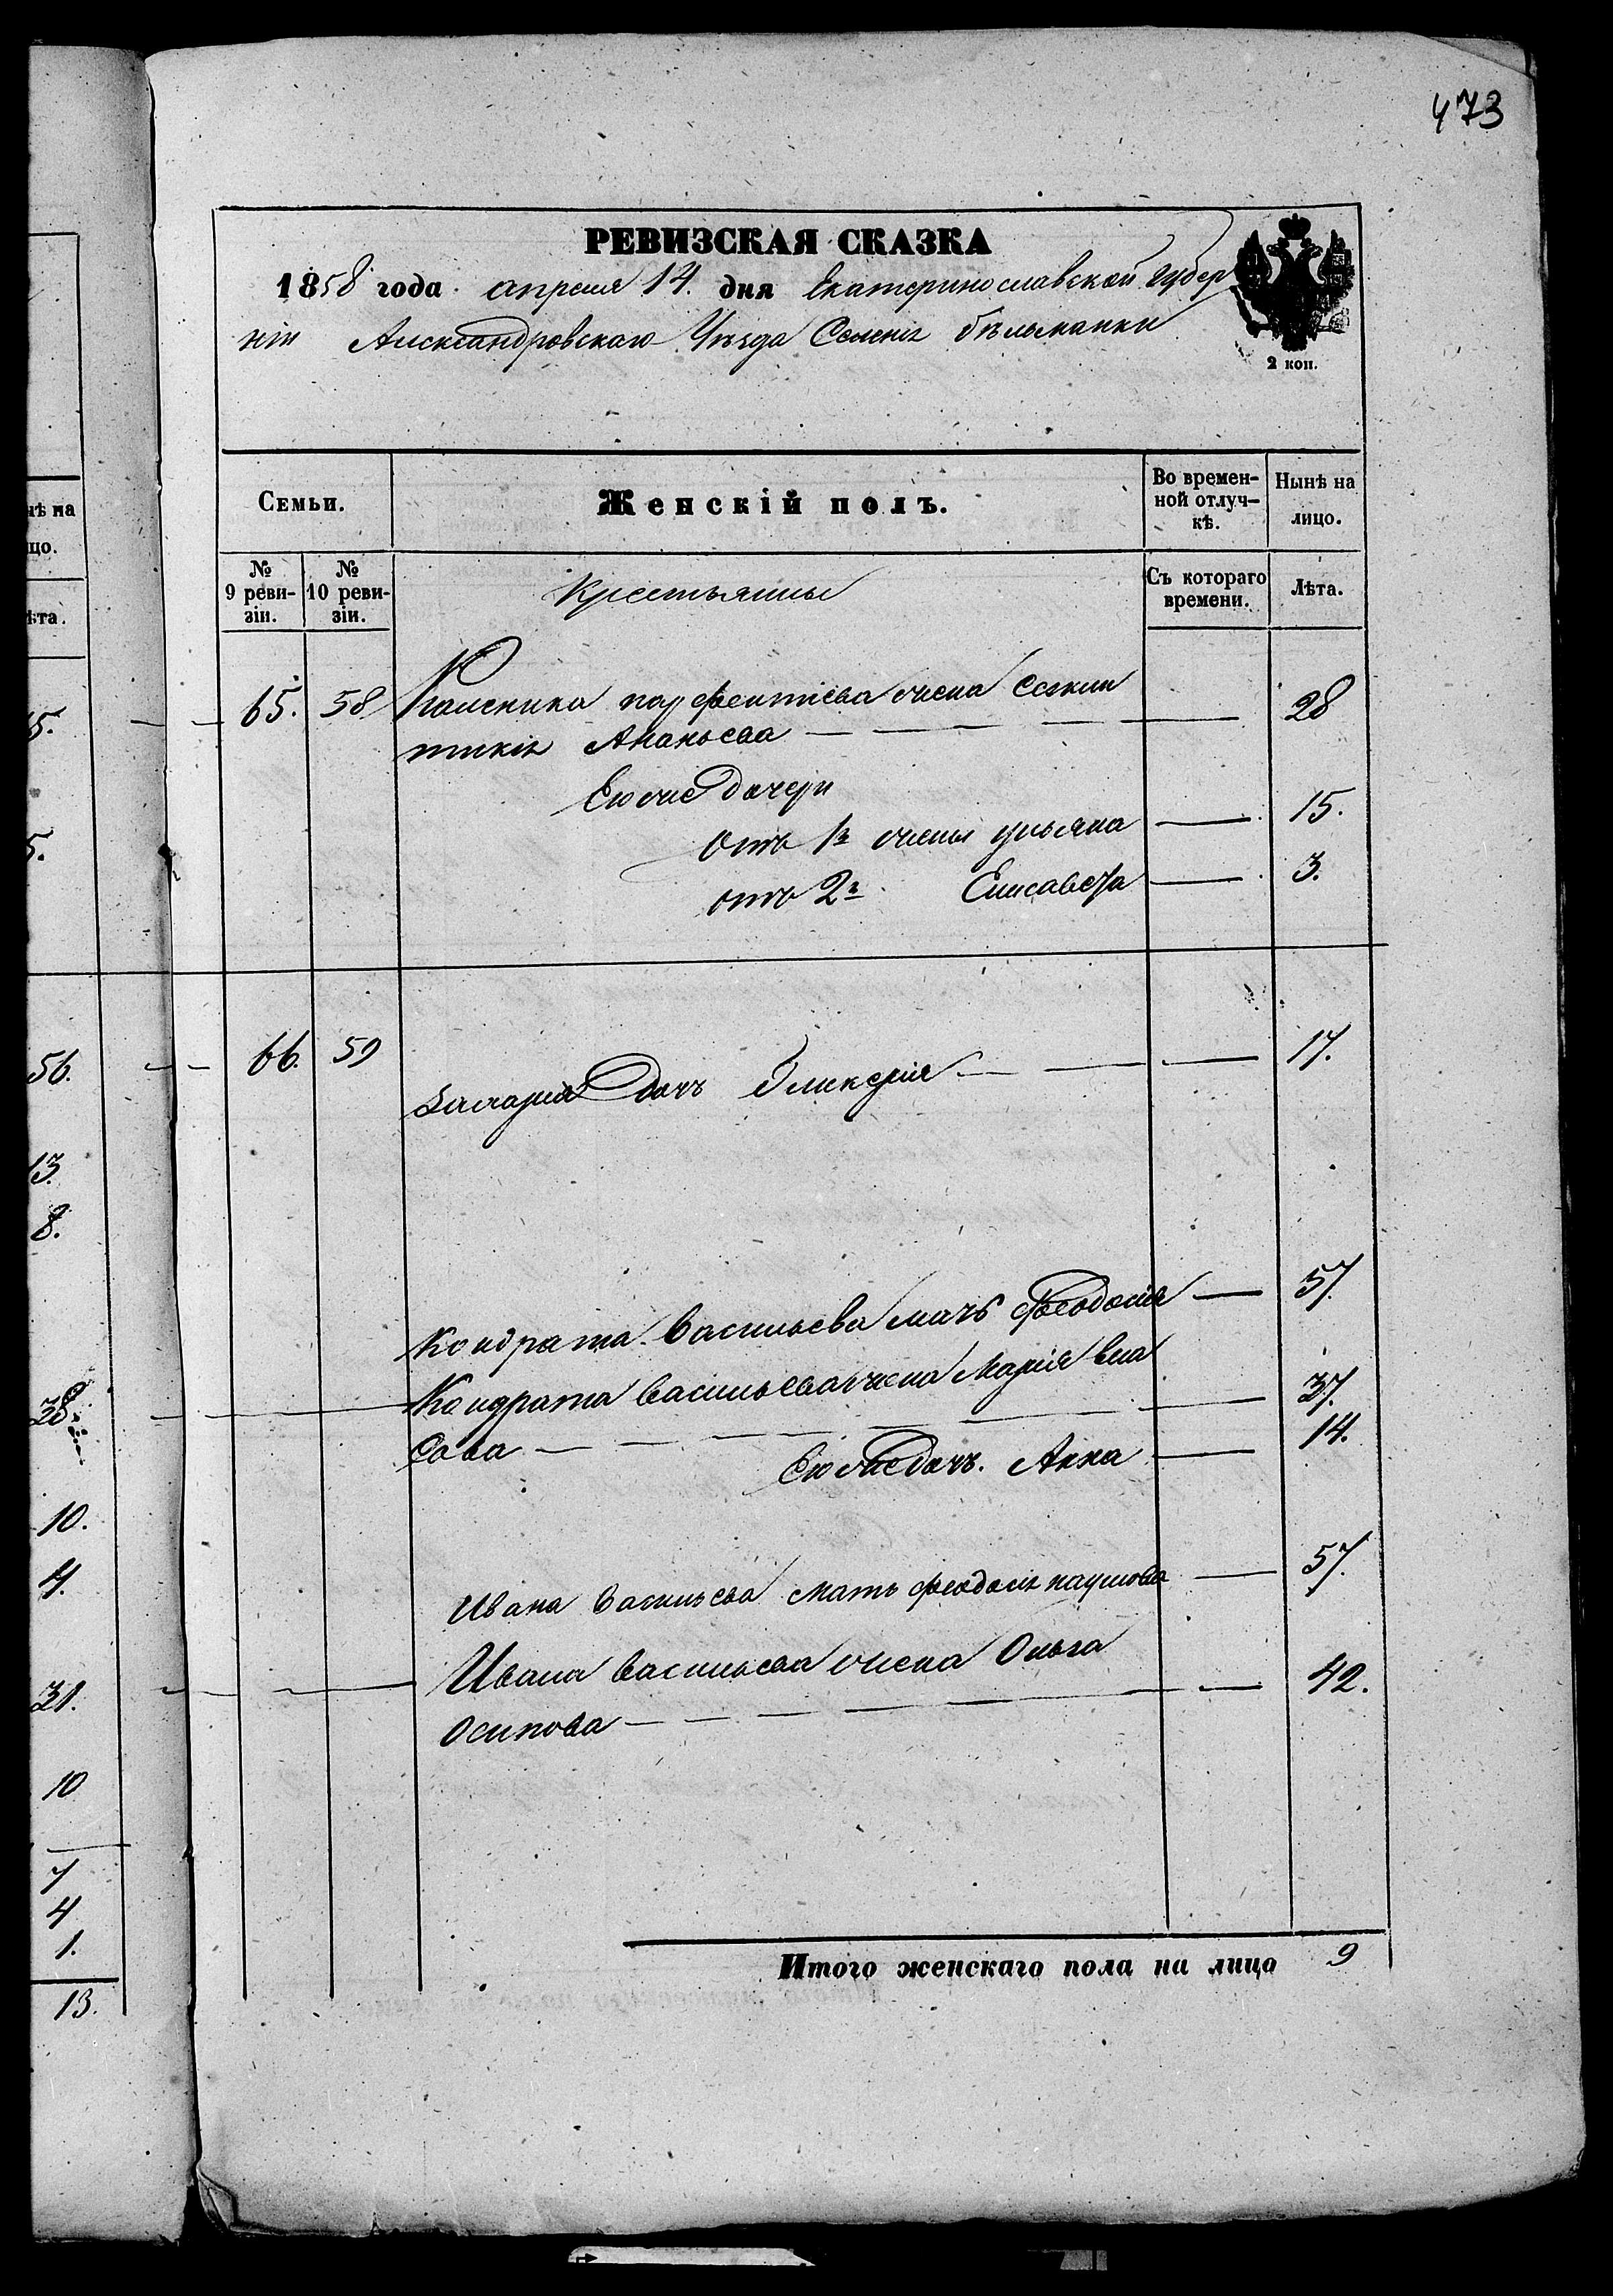 473
РЕВИЗСКАЯ СКАЗКА
1858 года апреля 14. дня Екатеринославской Губер
ніи Александровскаго Уѣзда Селенія бѣльманки
2 коп.
ѣ на
цо.
ѣта.
5.
5.
56.
13
8.
38.
10.
4.
31.
10
7
4
1.
13.
Семьи.
Женскій полъ.
Во времен-
ной отлуч-
кѣ.
Нынѣ на
лицо.
№
9 реви-
зіи.
№
10 реви-
зіи.
Крестьянны
Съ котораго
времени.
Лѣта.
65. 58 Каленика парфентіева жена Секли
тикія Ананьева 28
Его же дочери
отъ 1й жены ульяна 15.
отъ 2й Елисавета 3.
66. 59 дочь Гликерія 17.
Кондрата Васильева мать Феодосія 57.
Кондрата Васильева жена Марія Вла
сова 37.
Его же дочь. Анна 14.
Ивана Васильева мать феодосія наумова 57.
Ивана Васильева жена Ольга
Осипова 42.
Итого женскаго пола на лицо 9